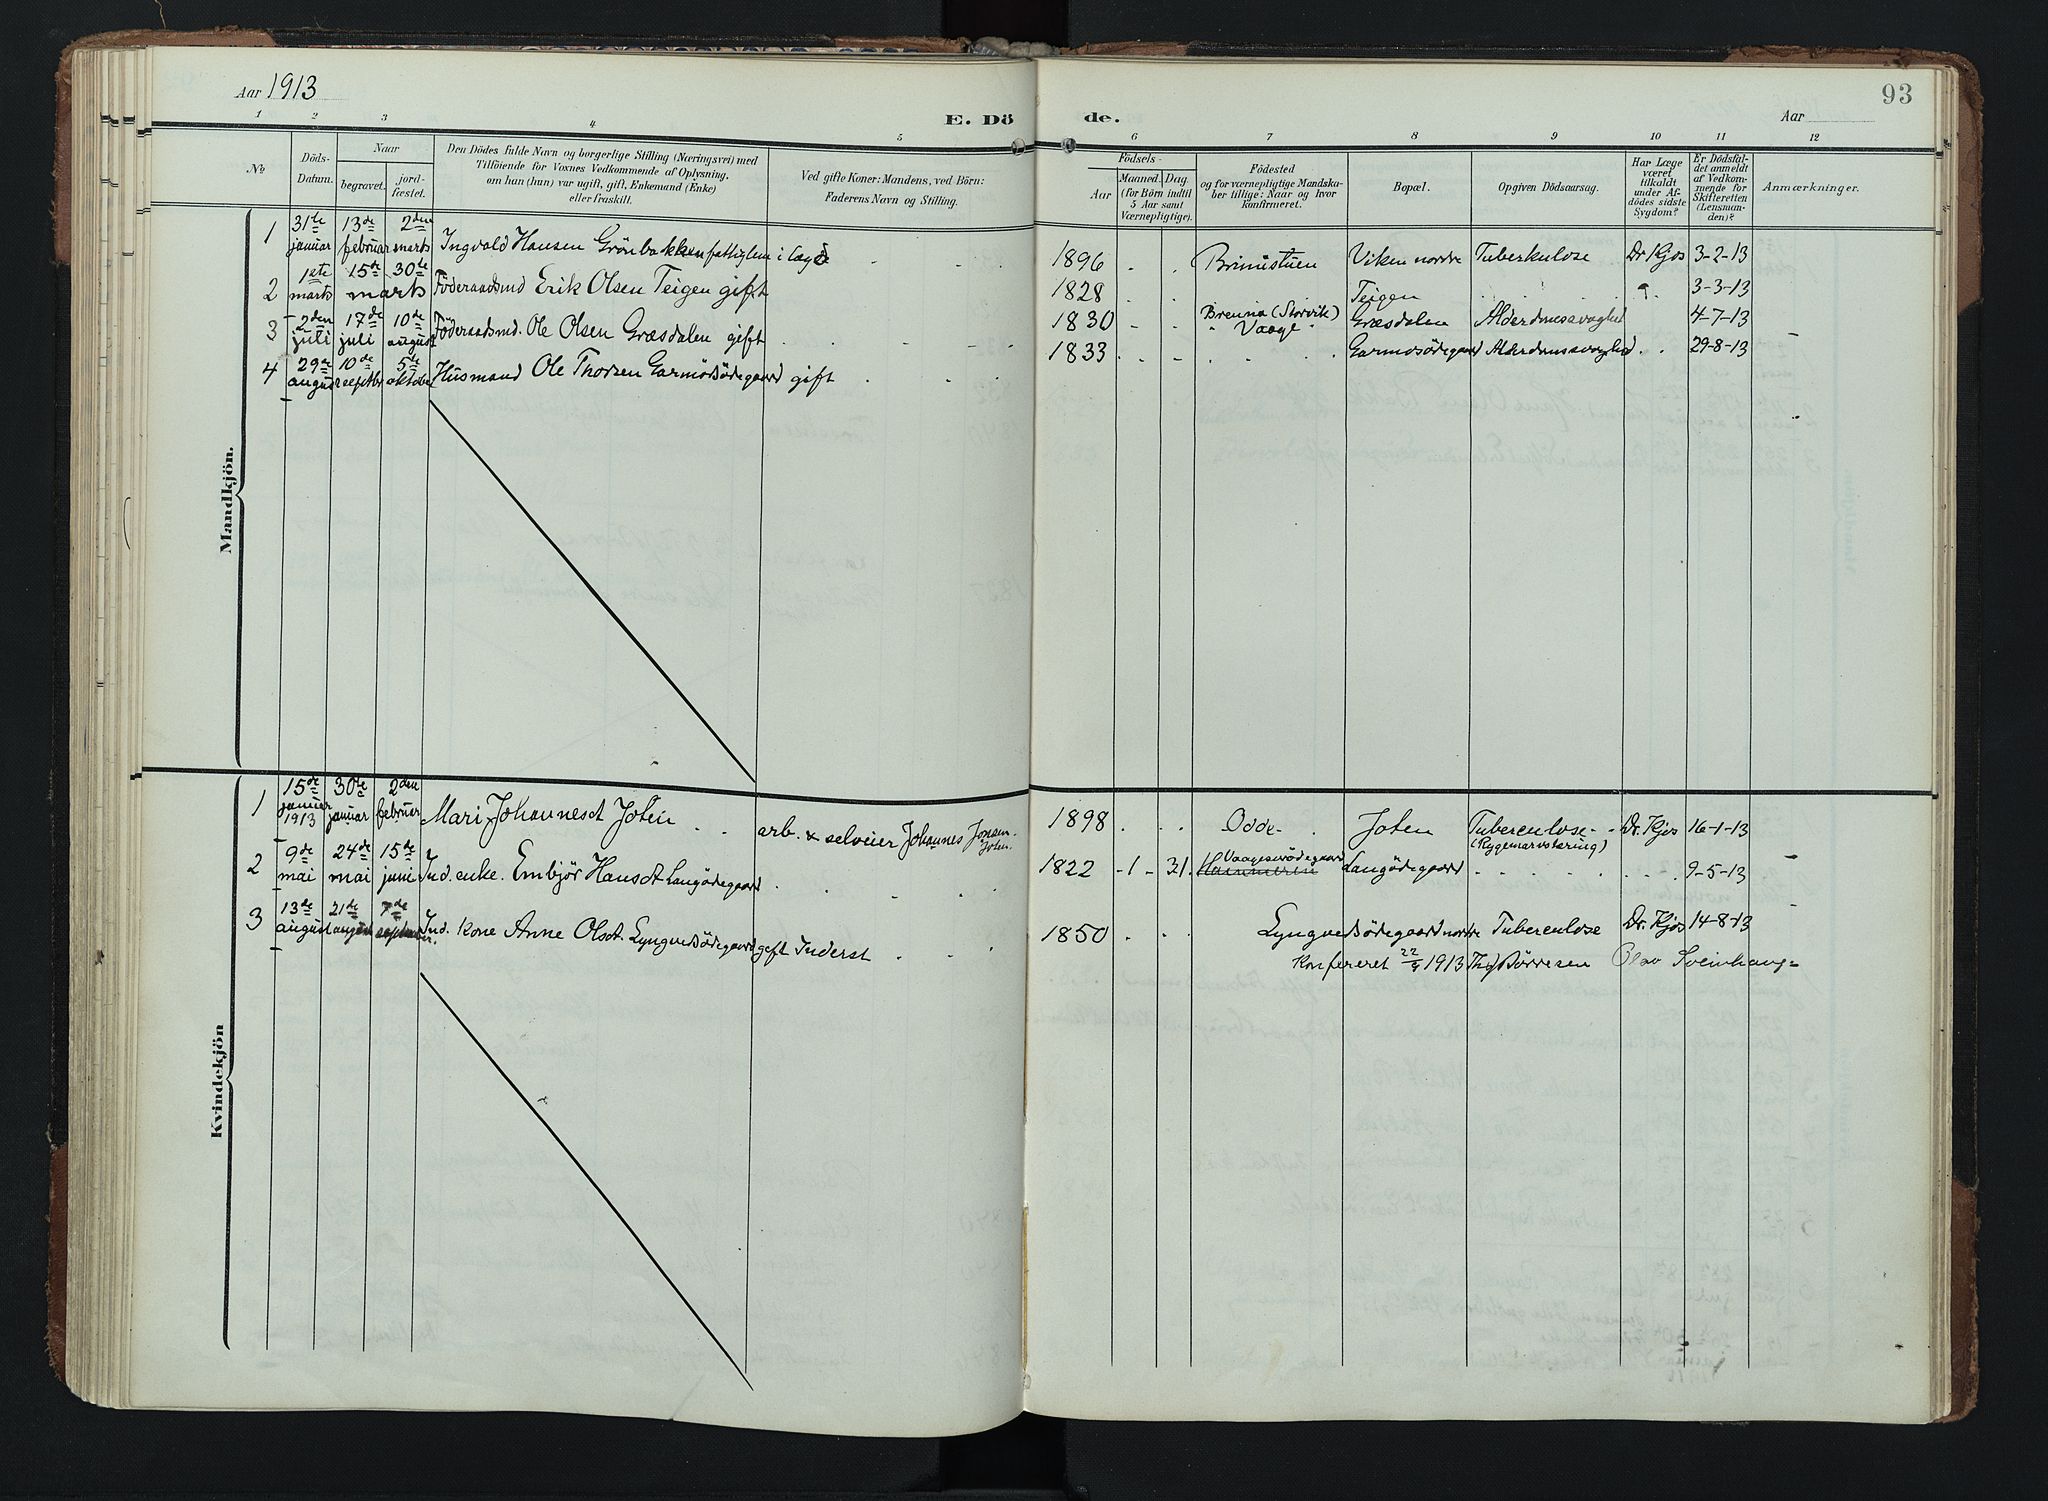 Aar 1913
93
Aar
E. Dö
de.
1 2 3 4 5 6 7 8 9 10 11 12
No
Döds-
Datum.
Naar
begravet.
jord-
fæstet.
Den Dödes fulde Navn og borgerlige Stilling (Næringsvei) med
Tilföiende for Voxnes Vedkommende af Oplysning,
om han (hun) var ugift, gift, Enkemand (Enke)
eller fraskilt.
Ved gifte Koner: Mandens, ved Börn:
Faderens Navn og Stilling.
Födsels-
Aar
Maaned. Dag.
(for Börn indtil
5 Aar samt
Værnepligtige).
Födested
og for værnepligtige Mandska-
ber tillige: Naar og hvor
konfirmeret.
Bopæl.
Opgiven Dödsaarsag.
Har Læge
været
tilkaldt
under Af-
dödes sidste
Sygdom?
Er Dödsfal-
det anmeldt
af Vedkom-
mende for
Skifteretten
(Lensman-
den)?
Anmærkninger.
Mandkjön.
1 31te januar 13de februar 2den marts Ingvald Hansen Grönbakken fattiglem i lægd 1896 Viken nordre Tuberkulose Dr Kjos 3-2-13
2 1ste marts 15de 30te marts Föderaadsmd Erik Olsen Teigen gift 1828 Teigen 3-3-13
3 2den juli 17de juli 10de august Föderaadsmd. Ole Olsen Græsdalen gift 1830 Brenna (Storvik) Vaage Græsdalen 4-7-13
4 29de august 10de septbr 5te oktober Husmand Ole Thorsen Garmosödegaard gift 1833 Garmosödegaard 29-8-13
Kvindekjön
1 15de januar 1913 30te januar 2den februar Mari Johannesdt Joten arb. & selveier Johannes Jonsen Joten. 1898 Odde Joten Tuberculose (Rygemarvstæring) Dr. Kjos 16-1-13
2 9de mai 24de mai 15de juni Ind. enke. Embjör Hansdt Langödegaard 1822 1 31. Hammeren Langödegaard 9-5-13
3 13de august 21de august 7de september. Ind. kone Anne Olsdt. Lyngvedsödegaard gift Inderst 1850 Lyngvedsödegaard nordre Tuberculose Dr. Kjos 14-8-13
Konfereret 1913 Börresen Olav Sveinhaug